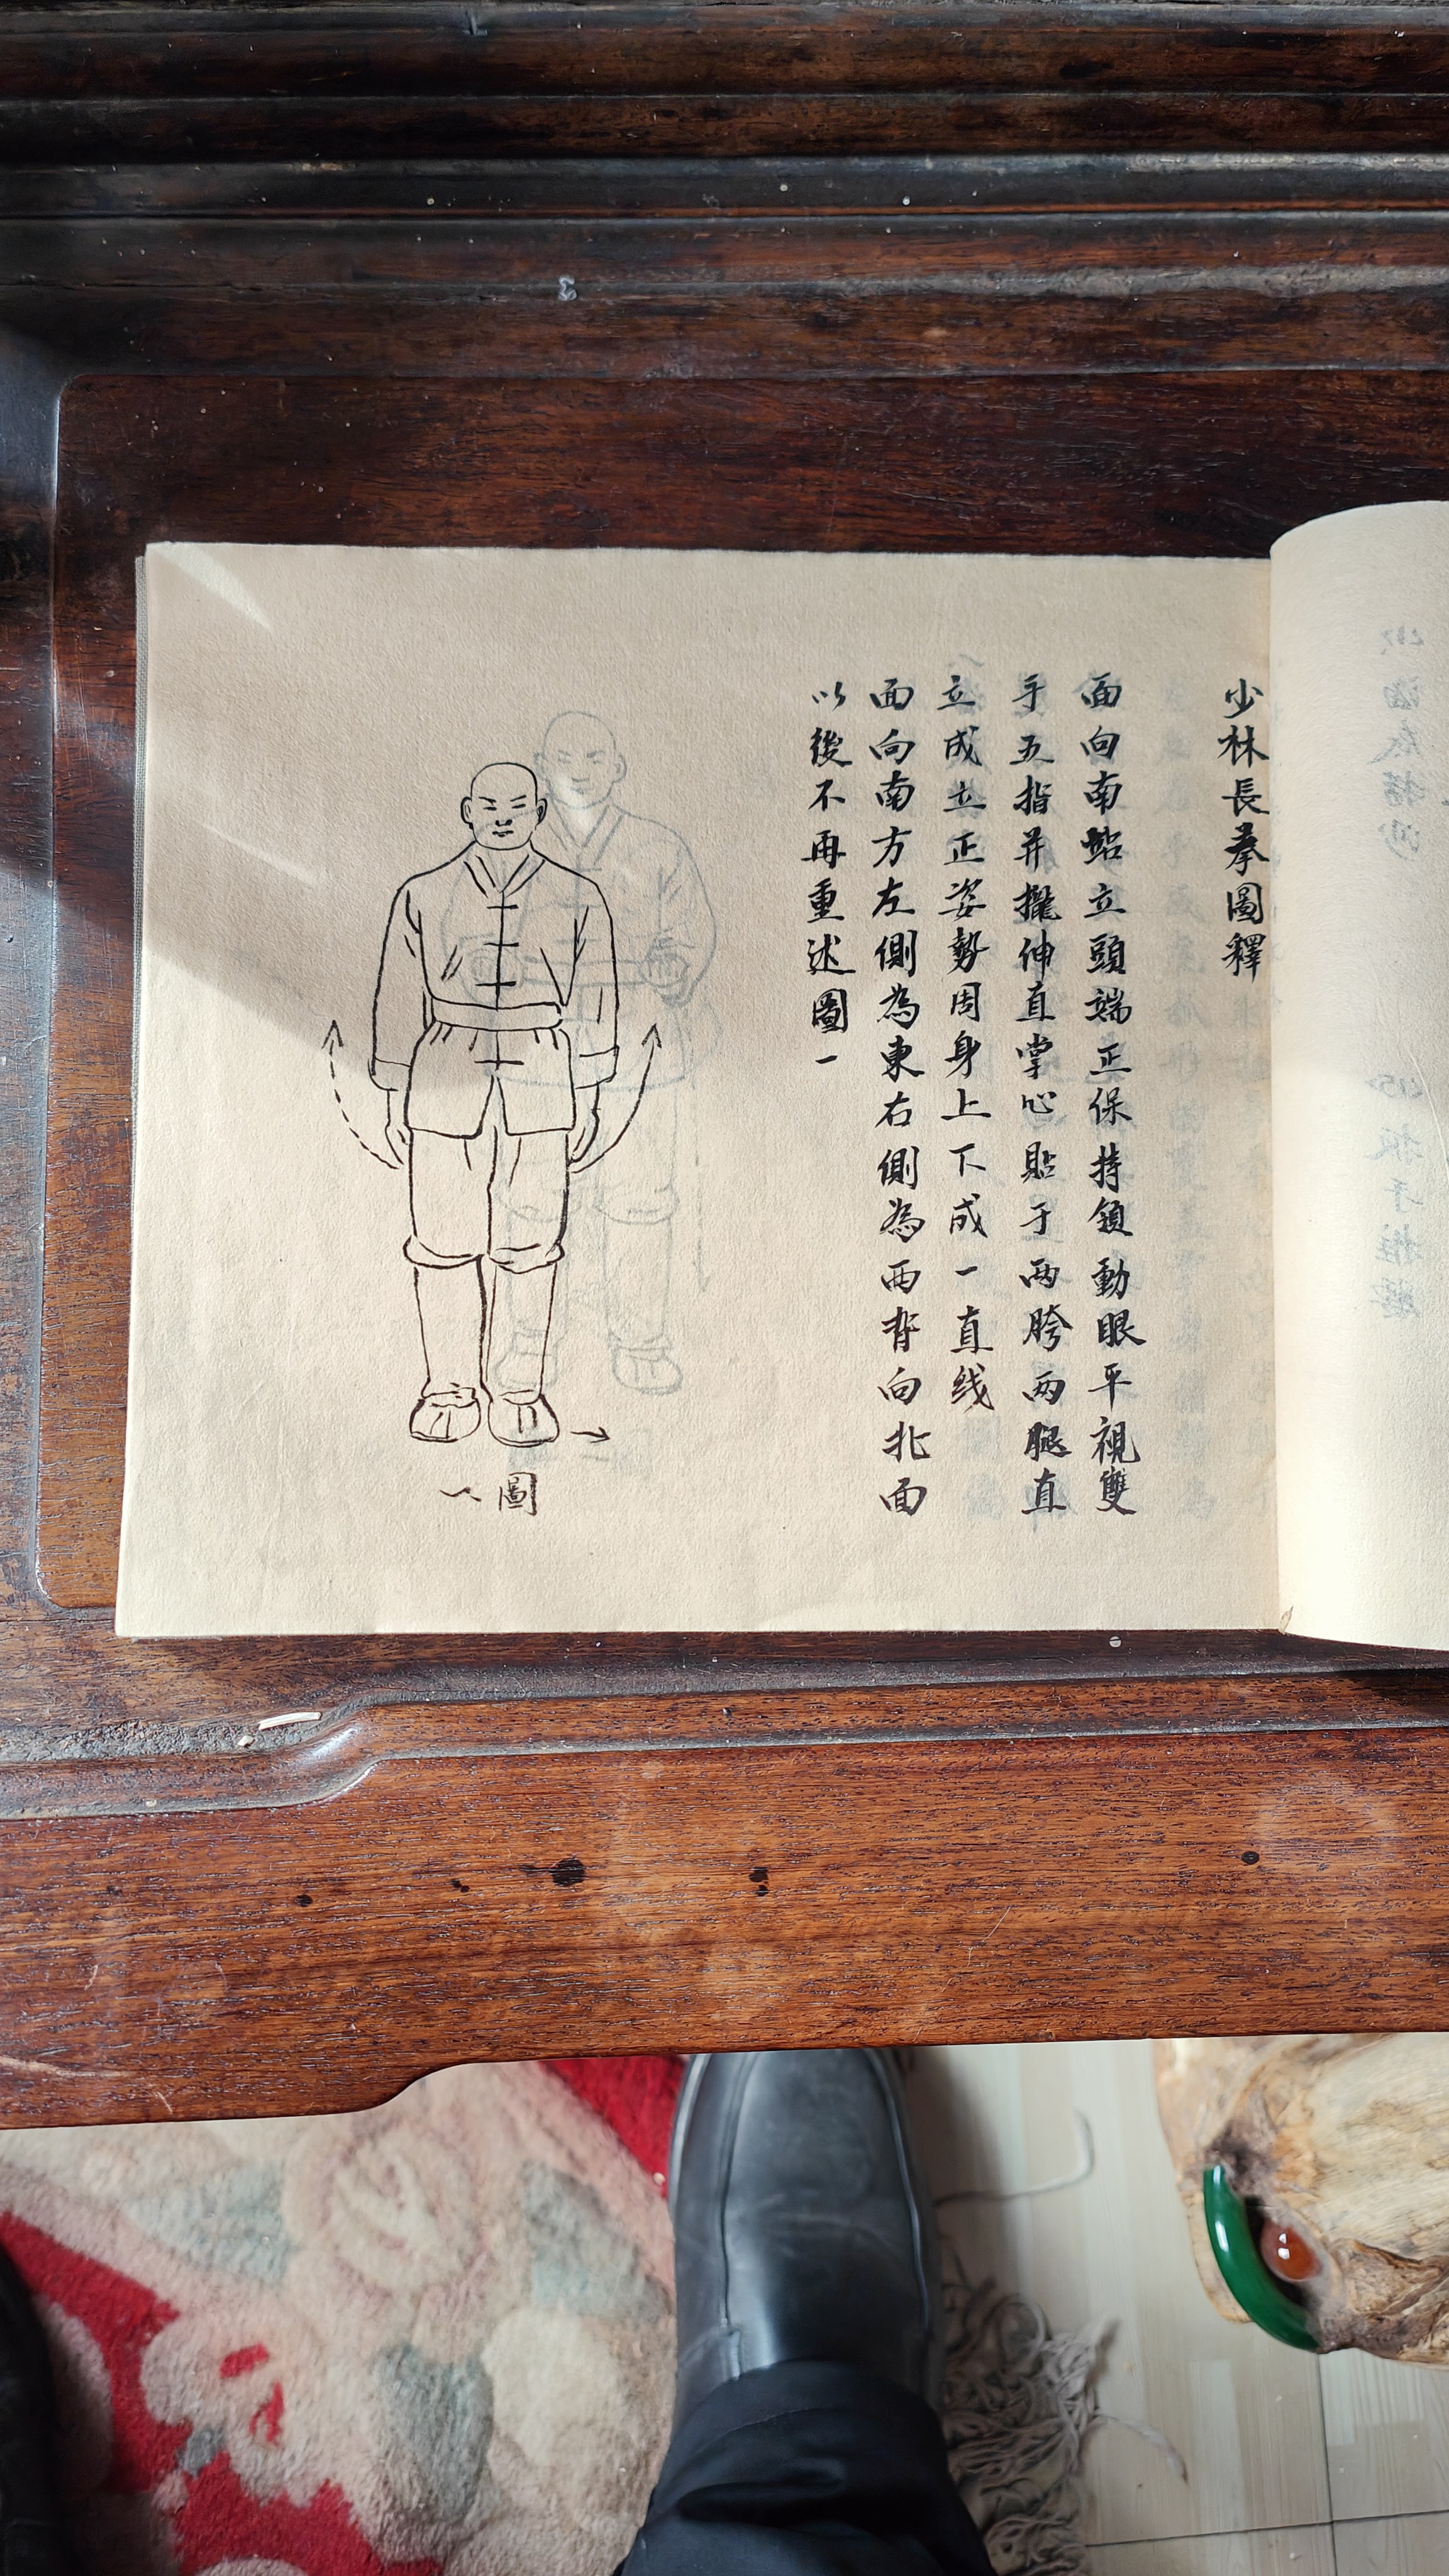 少林長拳圖釋
面向南站立頭端正保持頷動眼平視雙
手五指并攏伸直掌心貼于两胯两腿直
立成立正姿勢周身上下成一直线
面向南方左側為東右側為西背向北面
以後不再重述圖一
圖一